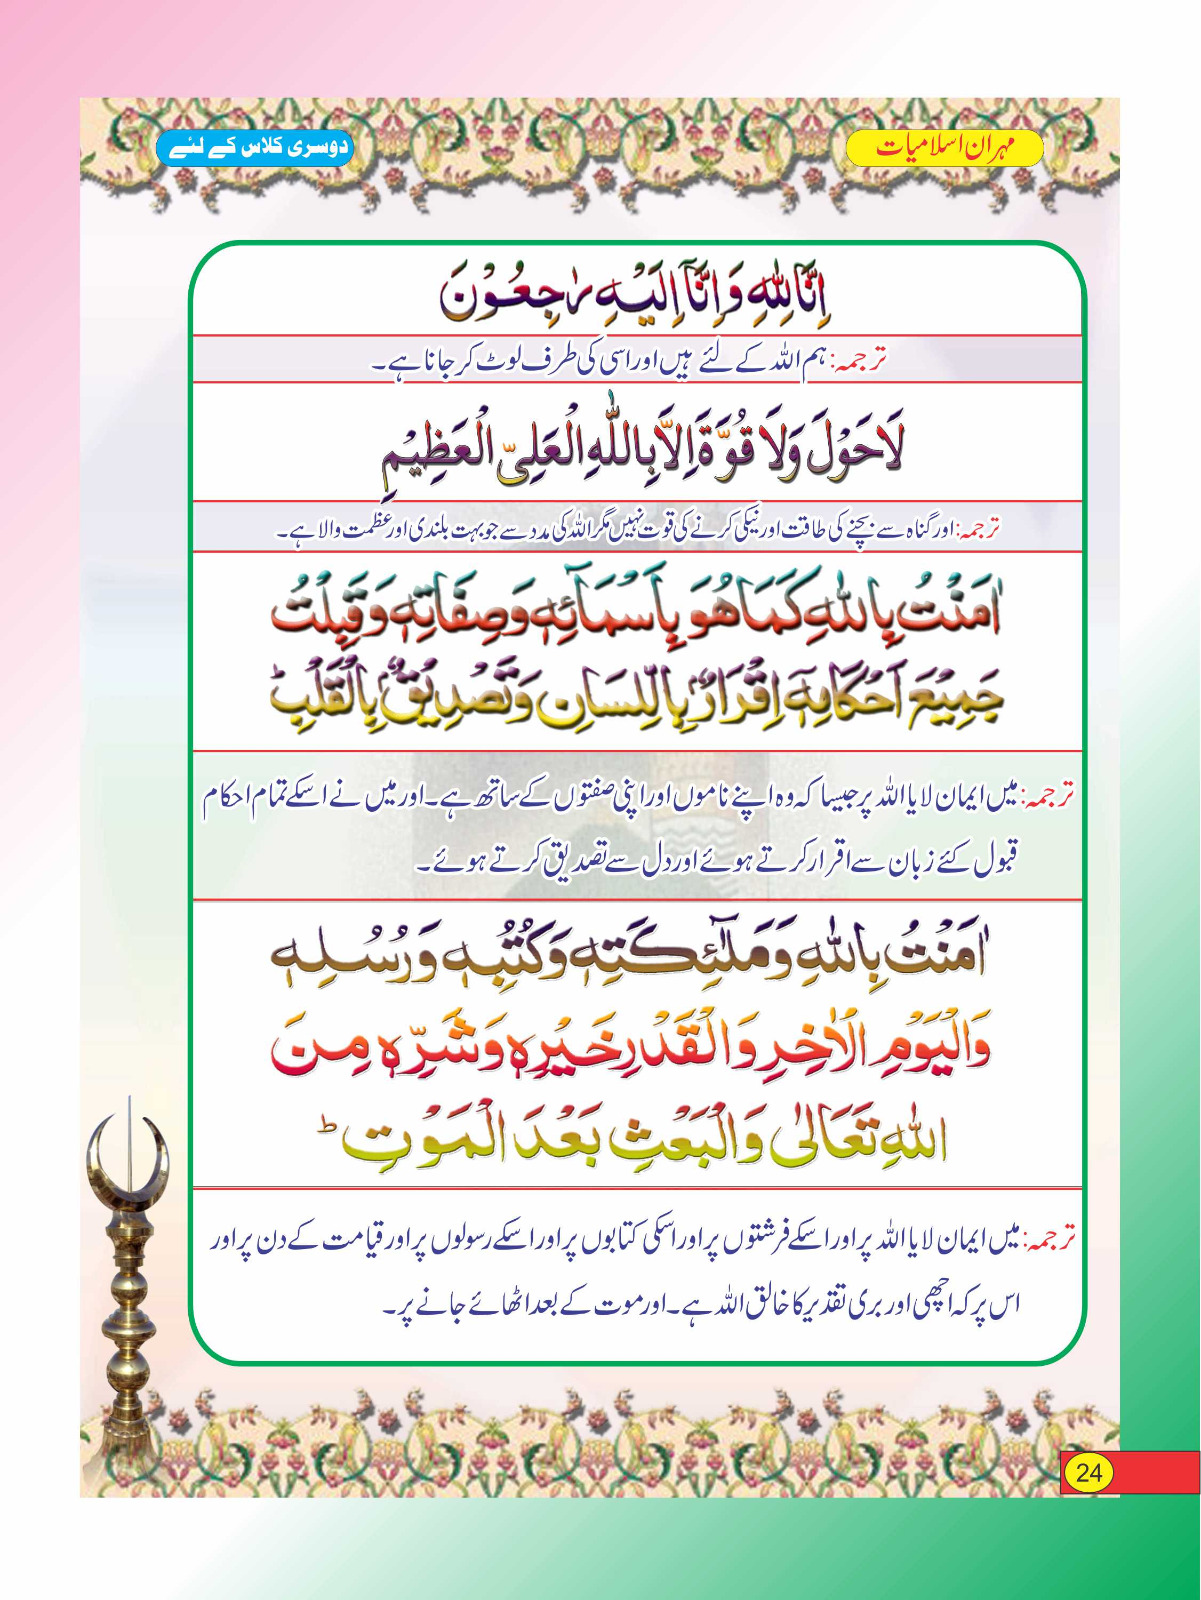 مہران اسلامیات
دوسری کلاس کے لئے
اِنَّا لِلّٰهِ وَاِنَّآ اِلَيْهِ رٰجِعُوْنَ
ترجمہ: ہم اللہ کے لئے ہیں اور اسی کی طرف لوٹ کر جانا ہے۔
لَا حَوْلَ وَلَا قُوَّةَ اِلَّا بِاللّٰهِ الْعَلِيِّ الْعَظِيْمِ
ترجمہ: اور گناہ سے بچنے کی طاقت اور نیکی کرنے کی قوت نہیں مگر اللہ کی مدد سے جو بہت بلندی اور عظمت والا ہے۔
اٰمَنْتُ بِاللّٰهِ كَمَا هُوَ بِاَسْمَآئِهٖ وَصِفَاتِهٖ وَقَبِلْتُ
جَمِيْعَ اَحْكَامِهٖٓ اِقْرَارٌۢ بِاللِّسَانِ وَتَصْدِيْقٌۢ بِالْقَلْبِؕ
ترجمہ: میں ایمان لایا اللہ پر جیسا کہ وہ اپنے ناموں اور اپنی صفتوں کے ساتھ ہے۔ اور میں نے اسکے تمام احکام
قبول کئے زبان سے اقرار کرتے ہوئے اور دل سے تصدیق کرتے ہوئے۔
اٰمَنْتُ بِاللّٰهِ وَمَلٰٓئِكَتِهٖ وَكُتُبِهٖ وَرُسُلِهٖ
وَالْيَوْمِ الْاٰخِرِ وَالْقَدْرِ خَيْرِهٖ وَشَرِّهٖ مِنَ
اللّٰهِ تَعَالٰى وَالْبَعْثِ بَعْدَ الْمَوْتِؕ
ترجمہ: میں ایمان لایا اللہ پر اور اسکے فرشتوں پر اور اسکی کتابوں پر اور اسکے رسولوں پر اور قیامت کے دن پر اور
اس پر کہ اچھی اور بری تقدیر کا خالق اللہ ہے۔ اور موت کے بعد اٹھائے جانے پر۔
24